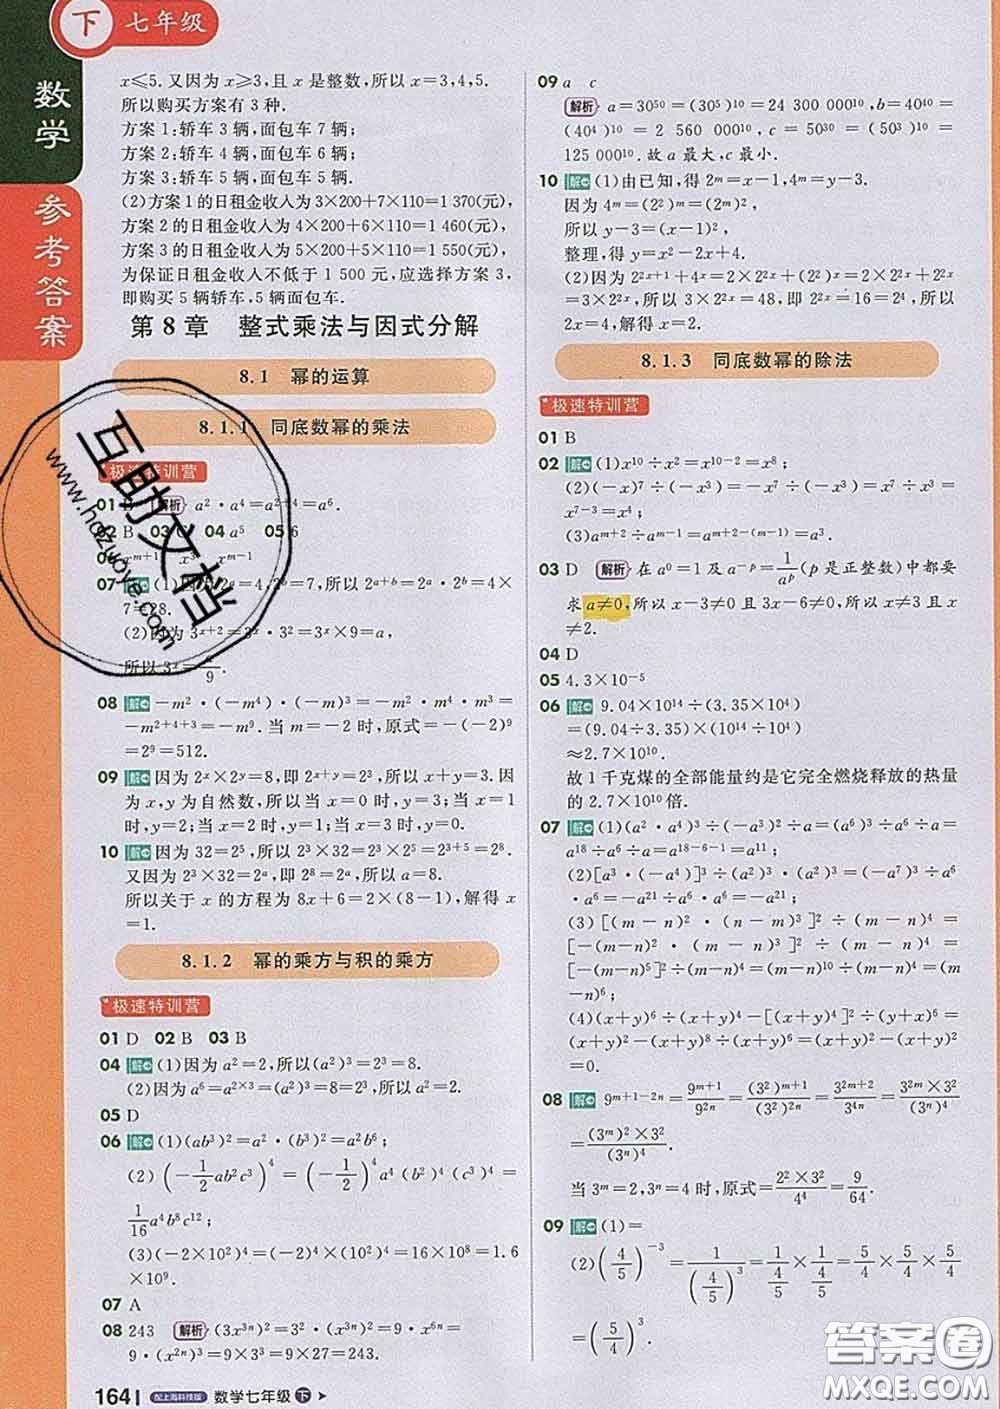 下 七年级
数学
参考答案
x≤5.又因为x≥3,且x是整数,所以x=3,4,5.
所以购买方案有3种.
方案1:轿车3辆,面包车7辆;
方案2:轿车4辆,面包车6辆;
方案3:轿车5辆,面包车5辆.
(2)方案1的日租金收入为3×200+7×110=1 370(元),
方案2的日租金收入为4×200+6×110=1 460(元),
方案3的日租金收入为5×200+5×110=1 550(元),
为保证日租金收入不低于1 500元,应选择方案3,
即购买5辆轿车,5辆面包车.
第8章 整式乘法与因式分解
8.1 幂的运算
8.1.1 同底数幂的乘法
极速特训营
01 B 解析 a²·a⁴=a²⁺⁴=a⁶.
02 B 03 C 04 a⁵ 05 6
06 xᵐ⁺¹ x³ xᵐ⁻¹
07 解 (1)因为2ᵃ=4,2ᵇ=7,所以2ᵃ⁺ᵇ=2ᵃ·2ᵇ=4×
7=28.
(2)因为3ˣ⁺²=3ˣ·3²=3ˣ×9=a,
所以3ˣ=a/9.
08 解 -m²·(-m⁴)·(-m)³=-m²·m⁴·m³=
-m²⁺⁴⁺³=-m⁹.当m=-2时,原式=-(-2)⁹
=2⁹=512.
09 解 因为2ˣ×2ʸ=8,即2ˣ⁺ʸ=2³,所以x+y=3.因
为x,y为自然数,所以当x=0时,y=3;当x=1
时,y=2;当x=2时,y=1;当x=3时,y=0.
10 解 因为32=2⁵,所以2³×32=2³×2⁵=2³⁺⁵=2⁸.
又因为2³×32=2ᵃ,即2⁸=2ᵃ,所以a=8.
所以关于x的方程为8x+6=2×(8-1),解得x
=1.
8.1.2 幂的乘方与积的乘方
极速特训营
01 D 02 B 03 B
04 解 (1)因为a²=2,所以(a²)³=2³=8.
(2)因为a⁶=a²ˣ³=(a²)³=8,所以a²=2.
05 D
06 解 (1)(ab³)²=a²·(b³)²=a²b⁶;
(2)(-1/2ab²c³)⁴=(-1/2)⁴a⁴(b²)⁴(c³)⁴=
1/16a⁴b⁸c¹²;
(3)(-2×10³)³×(-2×10⁰)=16×10⁹=1.6
×10⁹.
07 A
08 243 解析 (3x³ⁿ)²=3²·(x³ⁿ)²=9·x⁶ⁿ=
9·(x²ⁿ)³=9×3³=9×27=243.
09 a c
解析 a=30⁵⁰=(30⁵)¹⁰=24 300 000¹⁰,b=40⁴⁰=
(40⁴)¹⁰=2 560 000¹⁰,c=50³⁰=(50³)¹⁰=
125 000¹⁰.故a最大,c最小.
10 解 (1)由已知,得2ᵐ=x-1,4ᵐ=y-3.
因为4ᵐ=(2²)ᵐ=(2ᵐ)²,
所以y-3=(x-1)²,
整理,得y=x²-2x+4.
(2)因为2²ˣ⁺¹+4ˣ=2×2²ˣ+(2²)ˣ=2×2²ˣ+2²ˣ=
3×2²ˣ,所以3×2²ˣ=48,即2²ˣ=16=2⁴,所以
2x=4,解得x=2.
8.1.3 同底数幂的除法
极速特训营
01 B
02 解 (1)x¹⁰÷x²=x¹⁰⁻²=x⁸;
(2)(-x)⁷÷(-x³)=(-x⁷)÷(-x³)=x⁷÷x³=
x⁷⁻³=x⁴;
(3)aᵐ⁺²÷aᵐ⁻¹=aᵐ⁺²⁻⁽ᵐ⁻¹⁾=a³.
03 D 解析 在a⁰=1及a⁻ᵖ=1/aᵖ(p是正整数)中都要
求a≠0,所以x-3≠0且3x-6≠0,所以x≠3且x
≠2.
04 D
05 4.3×10⁻⁵
06 解 9.04×10¹⁴÷(3.35×10⁴)
=(9.04÷3.35)×(10¹⁴÷10⁴)
≈2.7×10¹⁰.
故1千克煤的全部能量约是它完全燃烧释放的热量
的2.7×10¹⁰倍.
07 解 (1)(a²·a⁴)³÷(-a³)²÷a=(a⁶)³÷a⁶÷a=
a¹⁸÷a⁶÷a=a¹⁸⁻⁶⁻¹=a¹¹;
(2)[a³·(-a)⁴]³÷(a²)³·(a²)³=(a⁷)³÷a⁶
·a⁶=-a²¹÷a⁶·a⁶=-a²¹;
(3)[(m-n)²·(n-m)³]²÷(m-n)⁴=
[-(m-n)²·(m-n)³]²÷(m-n)⁴=
[-(m-n)⁵]²÷(m-n)⁴=(m-n)¹⁰÷(m
-n)⁴=(m-n)⁶;
(4)(x+y)⁶÷(x+y)⁴-[(x+y)⁴]²÷(x+y)⁶=
(x+y)²-(x+y)⁸÷(x+y)⁶=(x+y)²-(x+y)²
=0.
08 解 9ᵐ⁺¹⁻²ⁿ=9ᵐ⁺¹/9²ⁿ=(3²)ᵐ⁺¹/(3²)²ⁿ=3²ᵐ⁺²/3⁴ⁿ=3²ᵐ×3²/(3ⁿ)⁴
=(3ᵐ)²×3²/(3ⁿ)⁴.
当3ᵐ=2,3ⁿ=4时,原式=2²×3²/4⁴=9/64.
09 解 (1)=
(2)(4/5)⁻³=1/(4/5)³=1/(4/5)×1/(4/5)×1/(4/5)=5/4×5/4×5/4
=(5/4)³.
164 配上海科技版 数学七年级 下
互助文档
www.hafzuoye.com
答案圈
MXQE.COM